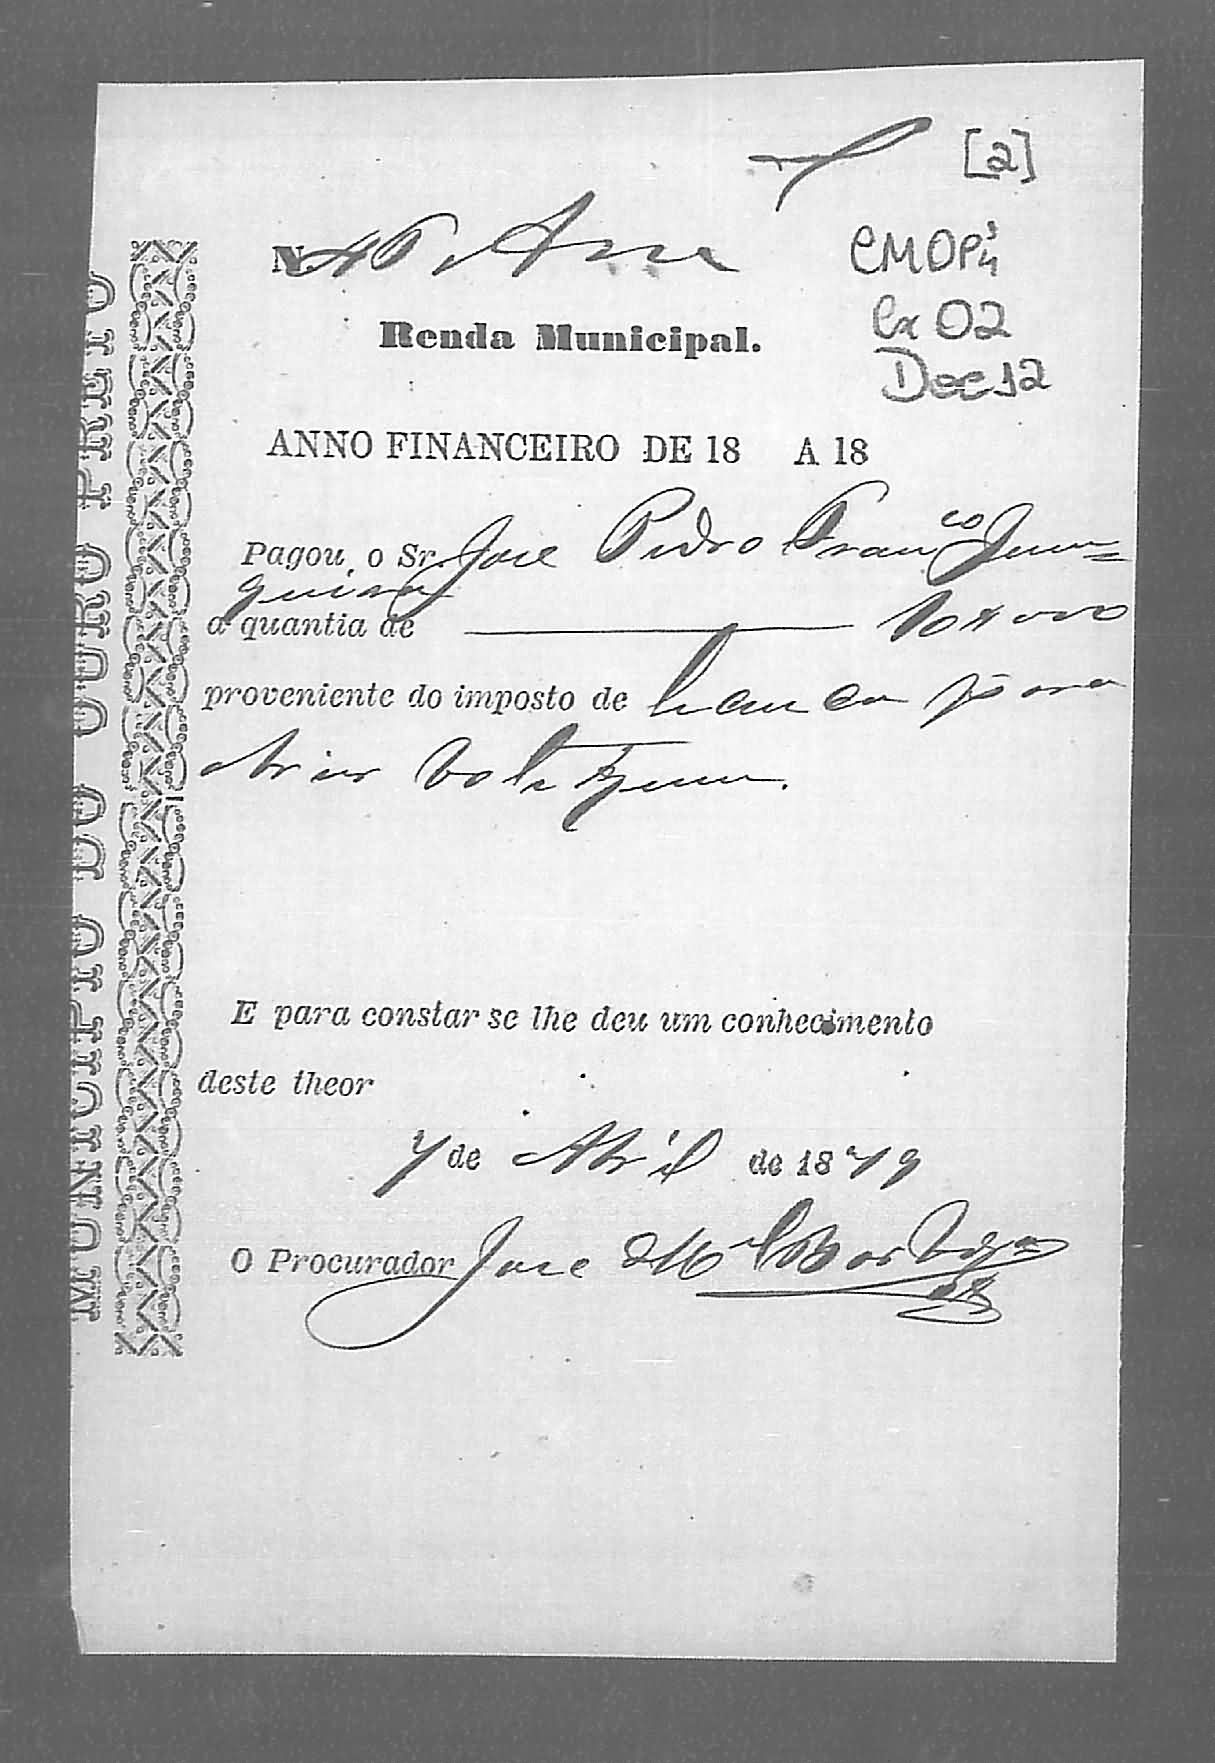 [2]
CMOP
Cx 02
Doc 12
N.
Renda Municipal.
ANNO FINANCEIRO DE 18 A 18
Pagou o Sr. Jose Pedro Franco Jun=
queira
a quantia de 10#000
proveniente do imposto de para
E para constar se lhe deu um conhecimento
deste theor
7 de Abril de 1879
O Procurador Jose Mel Borges
MUNICIPIO DO OURO PRETO